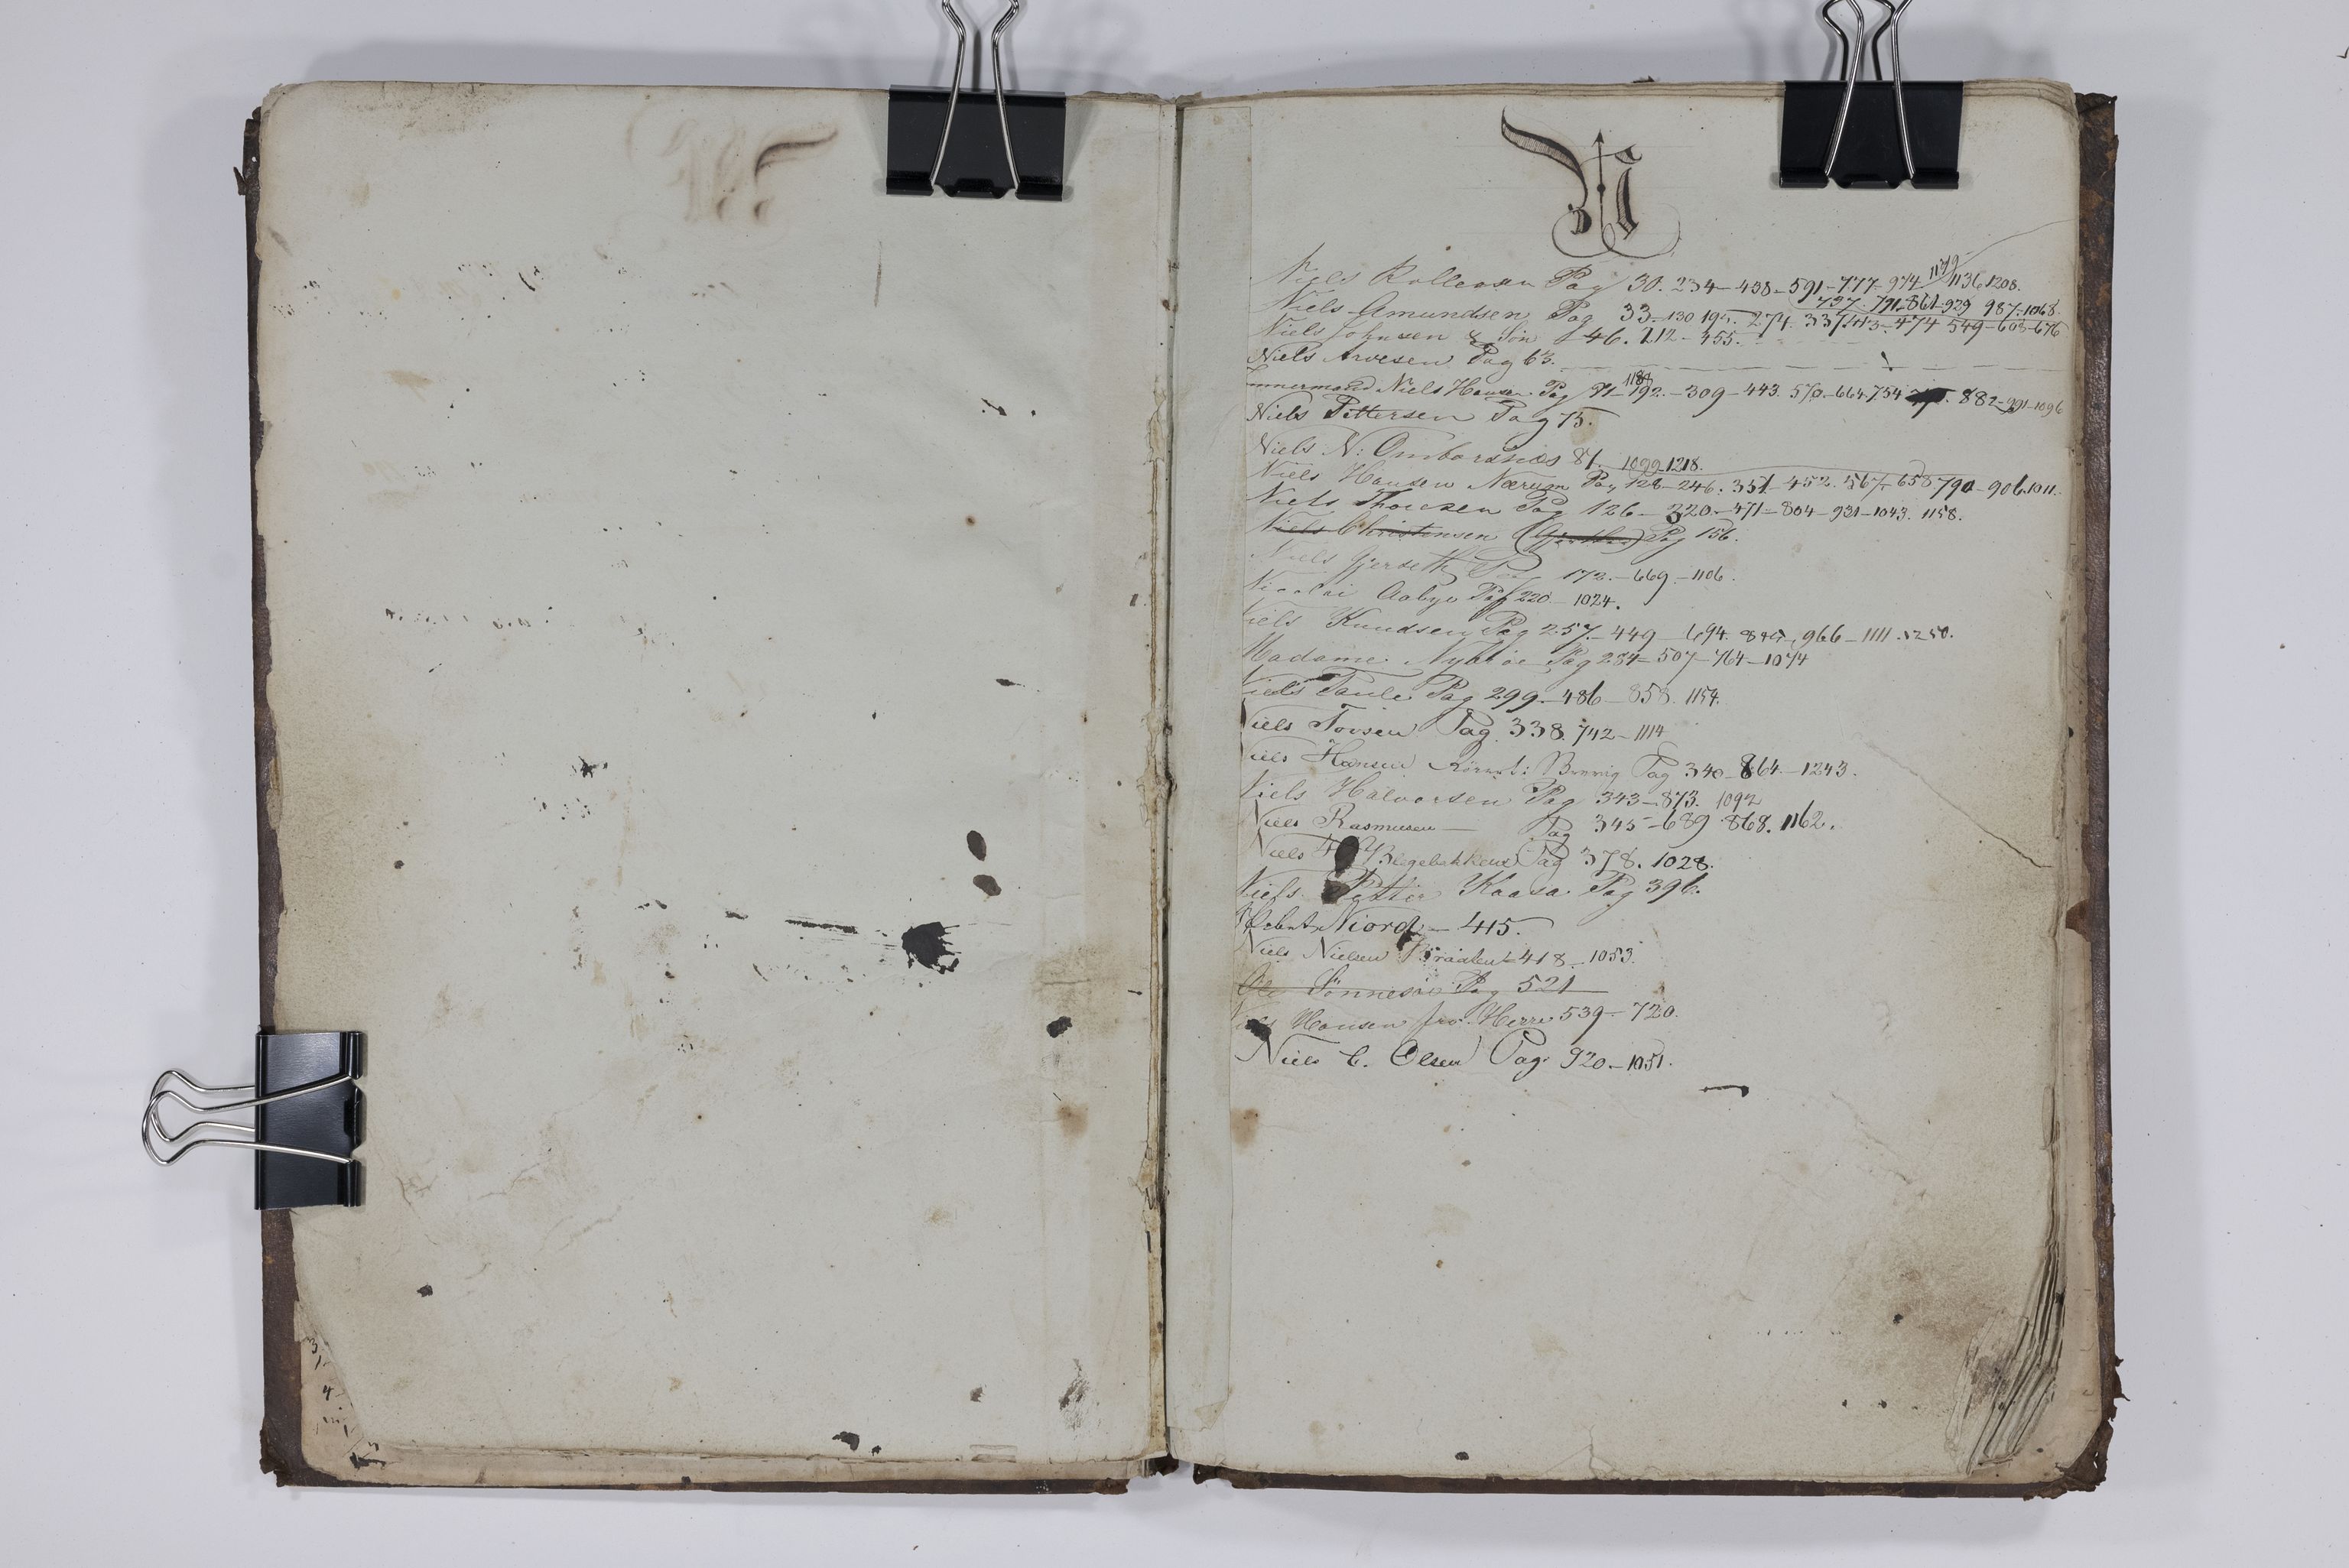 N
Niels Rollefsen Pag 30. 234 - 438 - 591 - 777 - 974 1179 1136 1208.
737. 791 - 861 - 929 987. 1068.
Niels Amundsen Pag 33 - 130 195. 274. 337 - 474 549 - 603 - 676
Niels Johnsen & Søn 46. 212 - 455.
Niels Arvesen Pag 63.
Niels Hansen Pag 71 - 192. - 309 - 443. 570 - 664. 754 882 - 991 - 1096
1188
Niels Pettersen Pag 75.
Niels N: Ombordsnæs 81. 1099. 1218.
Niels Hansen Nærum Pag 128 - 246. 351 - 452. 567 - 658 790 - 906. 1011.
Niels Thoresen Pag 126 - 320. - 471 - 804 - 931 - 1043. 1158.
Niels Christensen Pag 156.
Niels Gjerseth Pag 172. - 669. - 1106.
Nicolai Aabye Pag 220 - 1024.
Niels Knudsen Pag 257. - 449 - 694. 966 - 1111. 1250.
Madame Pag 284 - 507 - 764 - 1074
Niels Pag 299. - 486 - 858. 1154.
Niels Tovsen Pag. 338. 742 - 1114
Niels Hansen Pag 340 - 864 - 1243.
Niels Halvorsen Pag 343 - 873. 1092
Niels Rasmussen Pag 345 - 689 868. 1162.
Niels Pag 378. 1028.
Niels Petter Kaasa. Pag 396.
Niord - 415.
Niels Nielsen 418 - 1053.
Ole Sönnesen Pag 521
Niels Hansen fra Herre 539 - 720.
Niels C. Olsen Pag. 920. - 1051.